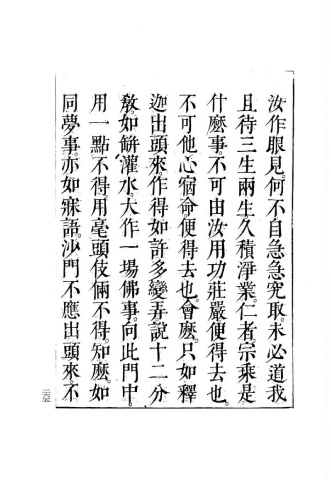 汝作眼見。何不自急急究取。未必道我
且待三生兩生。久積淨業。仁者。宗乘是
什麼事。不可由汝用功莊嚴便得去也。
不可他心宿命便得去也。會麼。只如釋
迦出頭來。作得如許多變弄。說十二分
教。如缾灌水。大作一場佛事。向此門中。
用一點不得。用毫頭伎倆不得。知麼。如
同夢事。亦如寐語。沙門不應出頭來。不
二六五